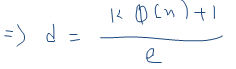 => d = (k Φ(n) + 1) / e